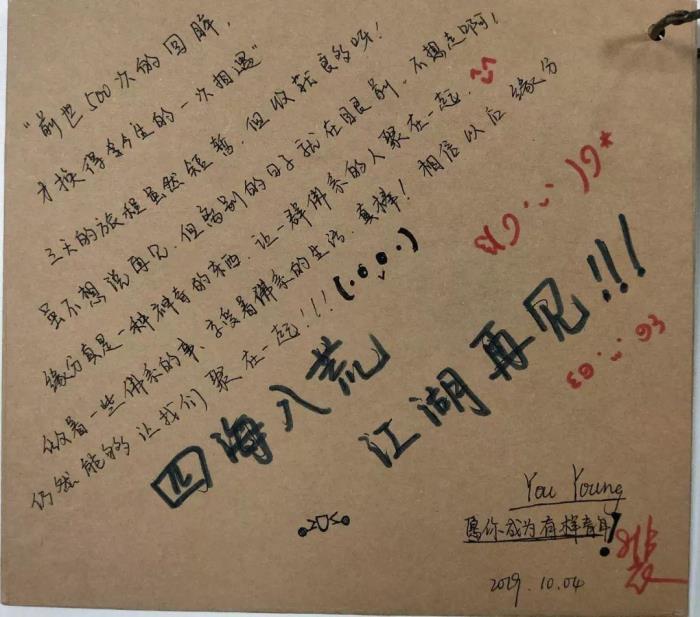 "前世500次的回眸，
才换得今生的一次相遇"
三天的旅程虽然短暂，但收获良多呀！
虽不想说再见，但离别的日子就在眼前，不想走啊！
缘分真是一种神奇的东西，让一群佛系的人聚在一起，
做着一些佛系的事，享受着佛系的生活，真棒！相信以后缘分
仍然能的让我们聚在一起！！！
四海八荒
江湖再见!!!
You Young
愿你成为有样青年！
2029.10.04